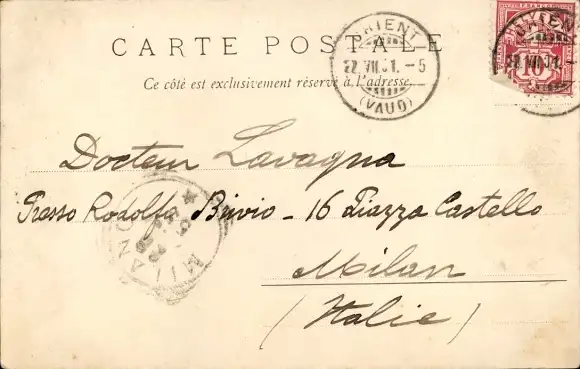 CARTE POSTALE
Ce côté est exclusivement réservé à l'adresse.
ORIENT
22.VII.01.-5
(VAUD)
10
Docteur Lavagna
Presso Rodolfo Brivio - 16 Piazza Castello
Milan
(Italie)
MILANO